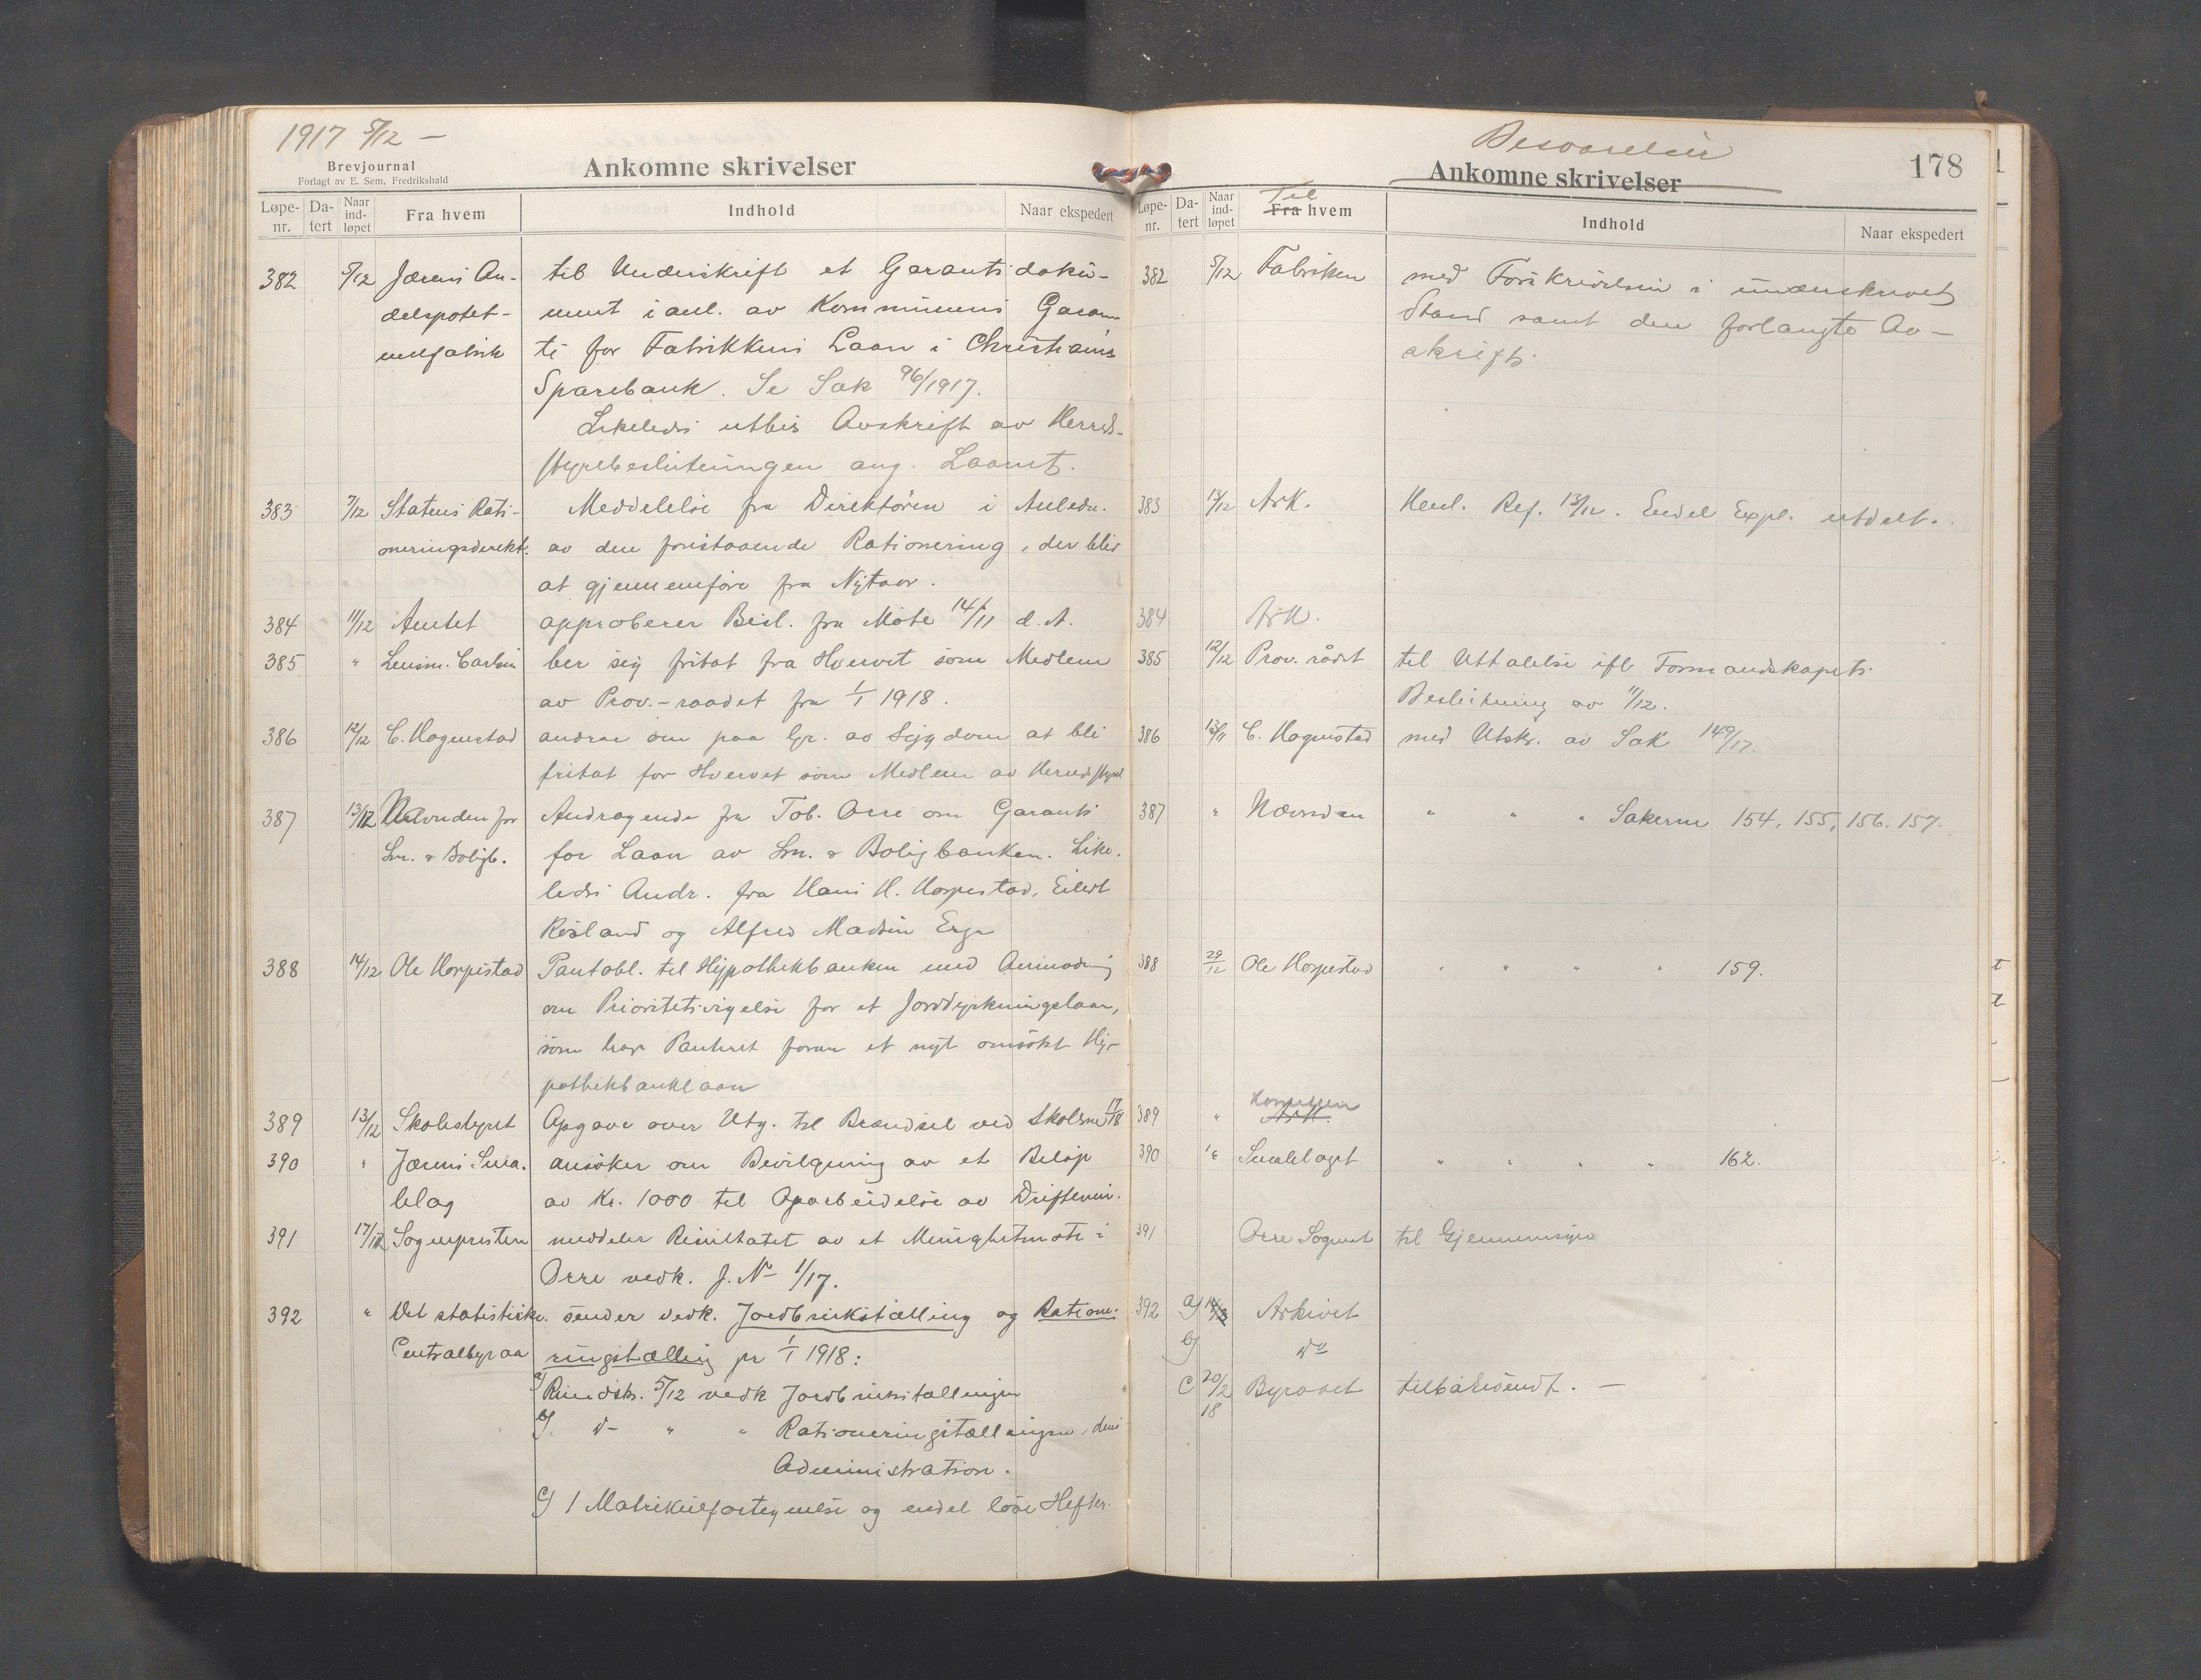 1917 5/12 –
Brevjournal
Forlagt av E. Sem, Fredrikshald
Ankomne skrivelser
Løpe-nr.
Da-tert
Naar ind-løpet
Fra hvem
Indhold
Naar ekspedert
382 5/12 Jærens An- til Underskrift et Garantidoku-
delspotet- ment i anl. av Kommunens Garan
melfabrik ti for Fabrikkens Laan i Christiania
Sparebank. Se Sak 96/1917.
Likeledes utbes Avskrift av Herreds-
styrebeslutningen ang. Laanet.
383 7/12 Statens Rati- Meddelelse fra Direktøren i Anledn.
oneringsdirekt. av den forestaaende Rationering, der blir
at gjennemføre fra Nytaar.
384 11/12 Amtet approberer Besl. fra Møte 14/11 d. A.
385 " Lensm. Carlsen ber sig fritat fra Hvervet som Medlem
av Prov.-raadet fra 1/1 1918.
386 12/12 C. Hognestad andrar om paa Gr. av Sygdom at bli
fritat for Hvervet som Medlem av Herredsstyret
387 13/12 Nævnden for Andragende fra Tob. Orre om Garanti
Sm. & Boligb. for Laan av Sm. & Boligbanken. Like-
ledes Andr. fra Hans H. Horpestad, Eilert
Røsland og Alfred Madsen Erga
388 14/12 Ole Horpestad Pantobl. til Hypothekbanken med Anmodning
om Prioritetsvigelse for et Jorddyrkningslaan,
som har Panteret foran et nyt omsøkt Hy-
pothekbanklaan
389 13/12 Skolestyret Opgave over Utg. til Brændsel ved Skolerne 17/18
390 " Jærens Smø- ansøker om Bevilgning av et Beløp
lelag av Kr. 1000 til Oparbeidelse av
391 17/12 Sogneprsten meddeler Resultatet av et Menighetsmøte i
Orre vedk. J. No 1/17.
392 " Det statistiske sender vedk. Jordbrukstælling og Ratione-
Centralbyraa ringstælling pr 1/1 1918:
a) Rundskr. 5/12 vedk Jordbrukstællingen
b) do " " Rationeringstællingen, dens
Administration.
c) 1 Matrikulfortegnelse og endel løse Hefter.
Besvarelser
Ankomne skrivelser
178
Løpe-nr.
Da-tert
Naar ind-løpet
Til
Fra hvem
Indhold
Naar ekspedert
382 5/12 Fabriken med Forskrivelsen i underskrevet
Stand samt den forlangte Av-
skrift.
383 13/12 Ark. Henl. Ref. 13/12. Endel Expl. utdelt.
384 Ark.
385 12/12 Prov. rådet til Uttalelse ifl Formandskapets
Beslutning av 11/12.
386 C. Hognestad med Utskr. av Sak 149/17.
387 " Nævnden " " " Sakerne 154, 155, 156. 157.
388 29/12 Ole Horpestad " " " " 159.
389 " Ark.
390 " " " " " 162.
391 Orre Sogn til Gjennemsyn
392 a) Arkivet
b) do
c 20/2 18 Byraaet tilbakesendt. –